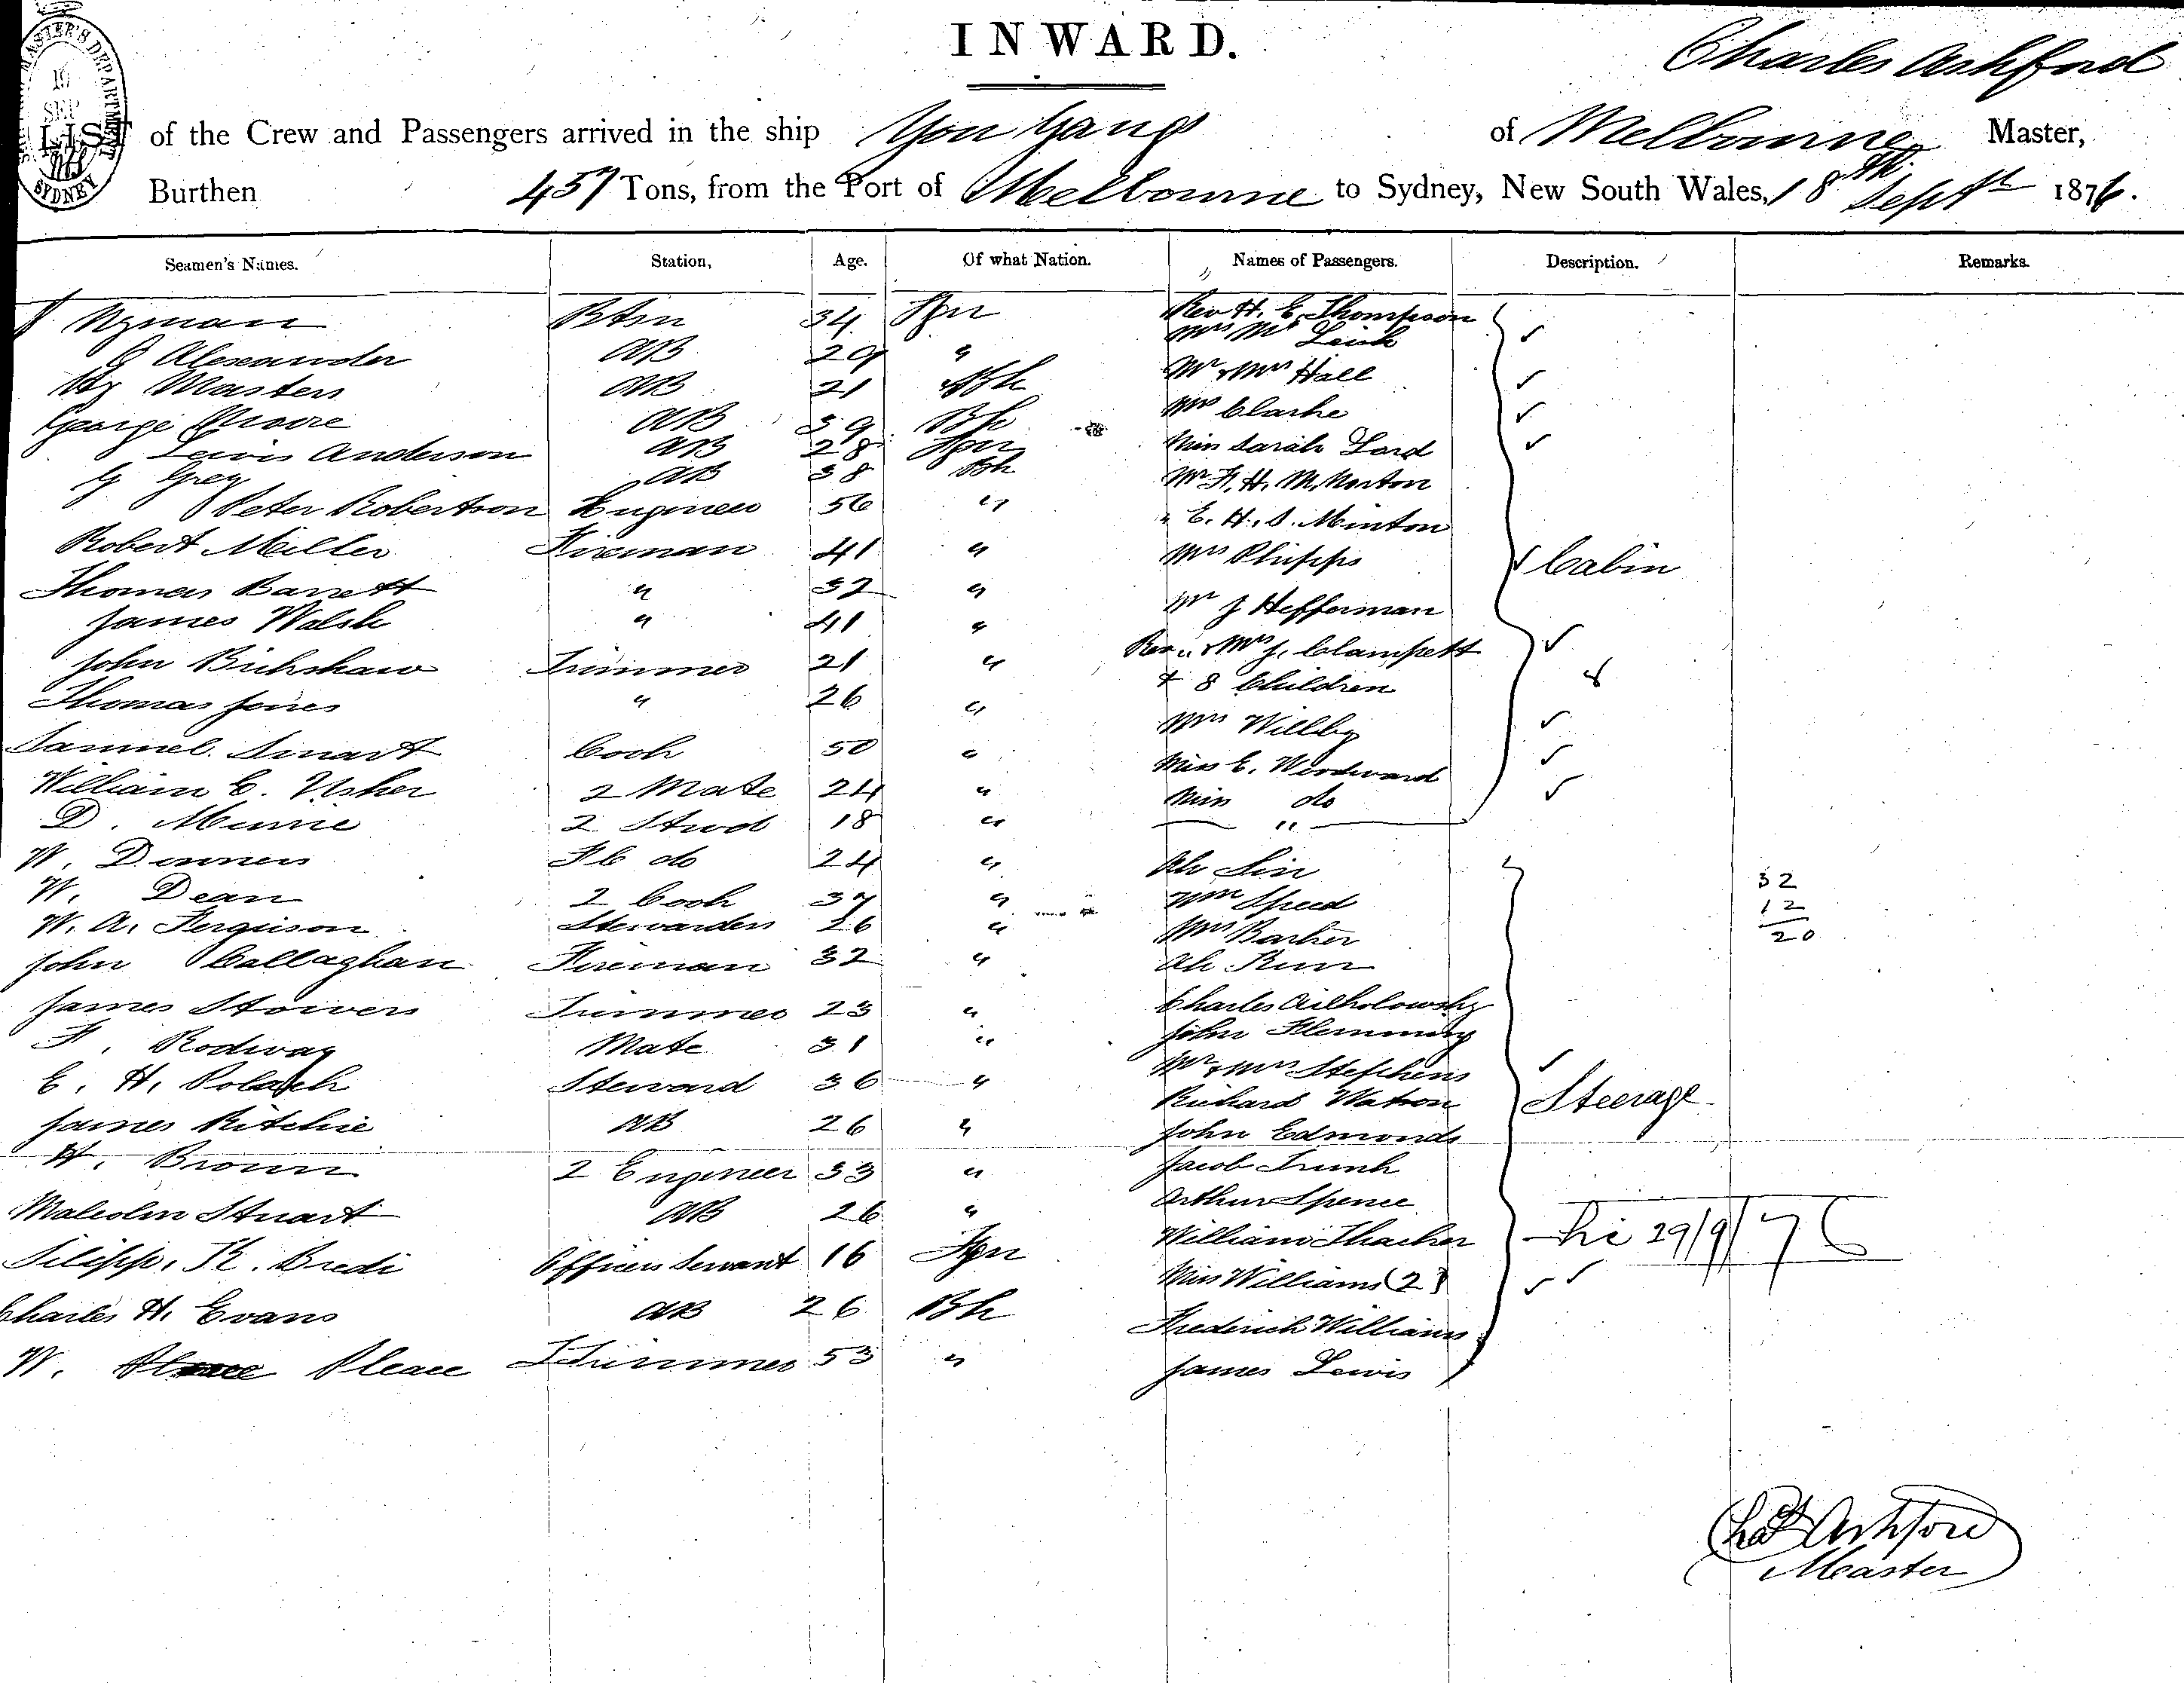 INWARD.
Charles Ashford
LIST of the Crew and Passengers arrived in the ship You Yangs of Melbourne Master,
Burthen 457 Tons, from the Port of Melbourne to Sydney, New South Wales, 18th Sept 1876.
Seamen's Names. Station, Age. Of what Nation. Names of Passengers. Description. Remarks.
Nyman Btsn 34 Fgn Rev H. E. Thompson
Alexander AB 29 " Mrs
Masters AB 21 Bh Mr & Mrs Hall
George Moore AB 59 Bh Mrs Clarke
Lewis Anderson AB 28 Fgn Miss Sarah Lord
G Grey AB 38 Bh Mr F. H. M. Norton
Peter Robertson Engineer 56 " " E. H. S. Minton
Robert Miller Fireman 41 " Mrs Phipps Cabin
Thomas Barrett " 32 " Mr J Hefferman
James Walsh " 41 "
John Trimmer 21 " Rev & Mrs J. Clampett
Thomas Jones " 26 " & 8 Children
Samuel Smart Cook 50 " Mrs Willby
William C. Usher 2 Mate 24 " Miss E. Woodward
D. 2 Stwd 18 " Miss do
"
W. 24 " Ah Sin
W. Dean 2 Cook 37 " Wm Speed
W. A. Ferguson Stewardess 26 " Mrs Barker
32
12
20
John Callaghan Fireman 32 " Ah
James Stowers Trimmer 23 " Charles
F. Rodway Mate 31 " John Flemming
E. H. Polack Steward 36 " Mr & Mrs Stephens
Richard Watson Steerage
James Ritchie AB 26 " John Edmonds
H. Brown 2 Engineer 33 " Jacob Trunk
Malcolm Stuart AB 26 " Arthur Spence
Filipp. K. Bredi Officers Servant 16 Fgn William Thacker
29/9/76
Miss Williams (2)
Charles H. Evans AB 26 Bh Frederick Williams
W. Pleace Trimmer 53 " James Lewis
Chas Ashford
Master
SYDNEY